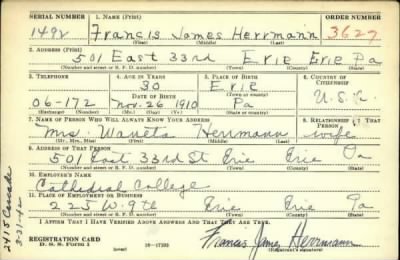 SERIAL NUMBER 1. NAME (Print) ORDER NUMBER
1492 Francis James Herrmann 3627
(First) (Middle) (Last)
2. ADDRESS (Print)
501 East 33rd Erie Erie Pa
(Number and street or R. F. D. number) (Town) (County) (State)
3. TELEPHONE 4. AGE IN YEARS 5. PLACE OF BIRTH 6. COUNTRY OF CITIZENSHIP
30 Erie
DATE OF BIRTH (Town or county)
06-172 Nov. 26 1910 Pa U.S.A.
(Exchange) (Number) (Mo.) (Day) (Yr.) (State or country)
7. NAME OF PERSON WHO WILL ALWAYS KNOW YOUR ADDRESS 8. RELATIONSHIP OF THAT PERSON
Mrs. Waneta Herrmann wife
(Mr., Mrs., Miss) (First) (Middle) (Last)
9. ADDRESS OF THAT PERSON
501 East 33rd St Erie Erie Pa
(Number and street or R. F. D. number) (Town) (County) (State)
10. EMPLOYER'S NAME
Cathedral College
11. PLACE OF EMPLOYMENT OR BUSINESS
225 W. 9th Erie Erie Pa
(Number and street or R. F. D. number) (Town) (County) (State)
I AFFIRM THAT I HAVE VERIFIED ABOVE ANSWERS AND THAT THEY ARE TRUE.
REGISTRATION CARD
D. S. S. Form 1 (over) 16-17105 Francis James Herrmann
(Registrant's signature)
2415 Cascade
3-31-42